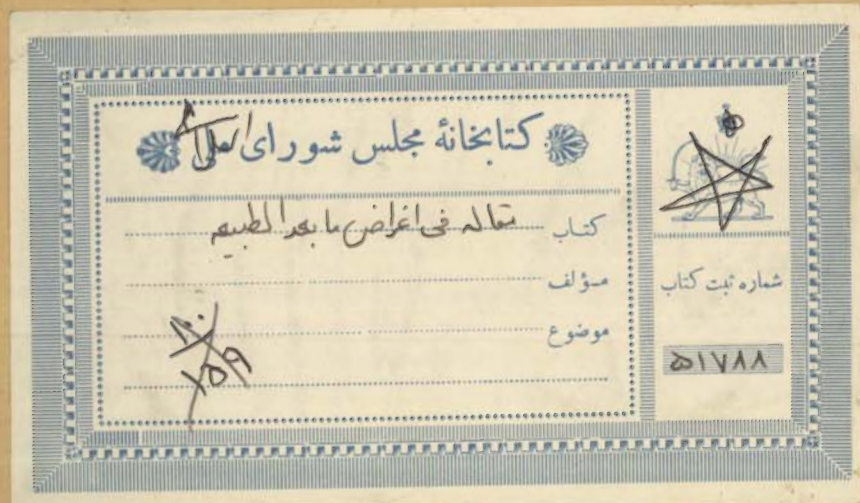 کتابخانهٔ مجلس شورای
کتاب مقاله فی اغراض ما بعد الطبیعه
مؤلف
موضوع
۱۰۰
۱۵۹
شماره ثبت کتاب
۵۱۷۸۸